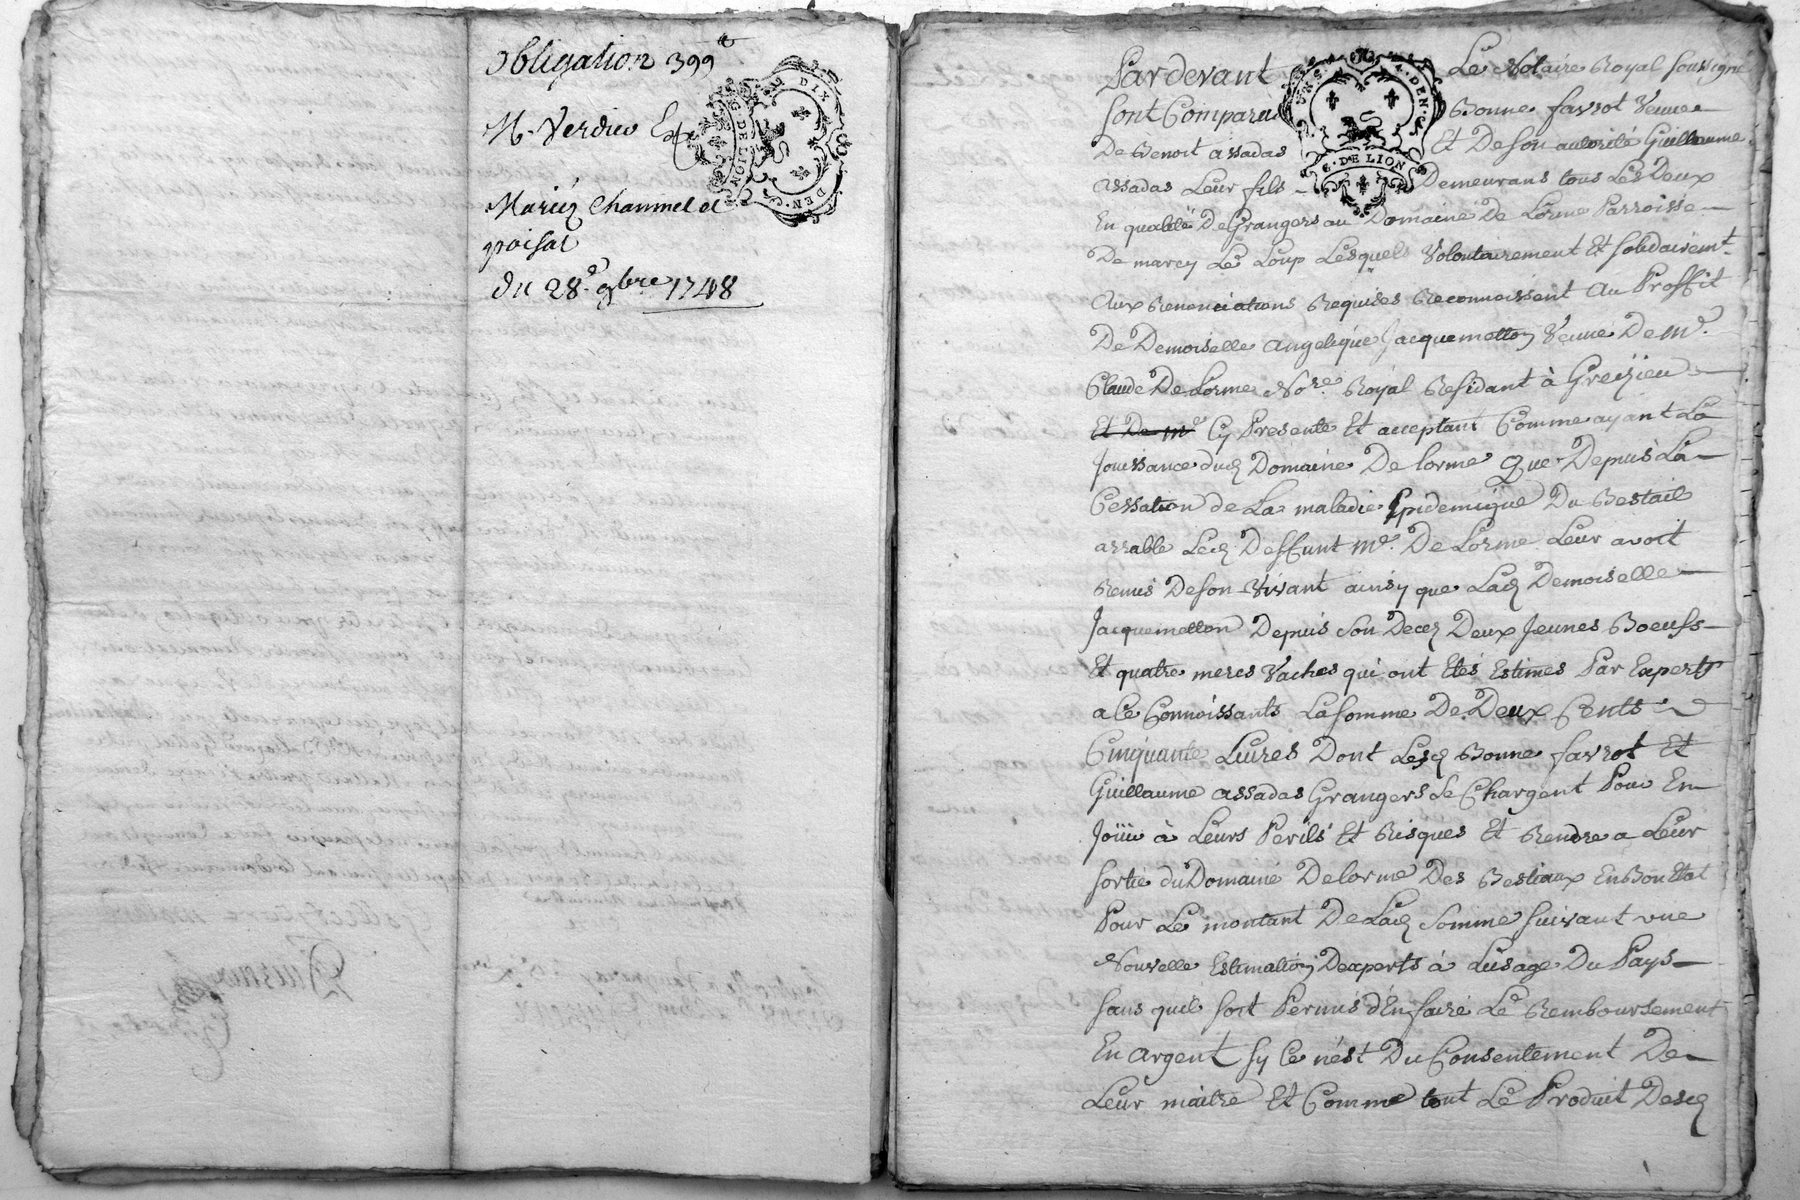 Obligation 399ᵗᵗ
M. Verdier
Mariez Channel et
poisat
du 28.ᵉ 9bre 1748
DIX DEN.
G. DE LION
Pardevant Le Notaire Royal soussigné
sont Comparu Bonne favrot Veuve
De Benoit assadas Et De son autorité Guillaume
assadas Leur fils Demeurans tous Les Deux
En qualité De Grangers au Domaine De Lorme Parroisse
De marcy Le Loup Lesquels Volontairement Et solidairemᵗ.
Aux Renonciations Requises Reconnoissent Au Proffit
De Demoiselle angelique Jacquemetton Veuve De mᵉ.
Claude De Lorme Noʳᵉ. Royal Residant à Greizieu
Et De mᵉ Cy Presente Et acceptant Comme ayant La
Jouissance dud Domaine De lorme Que Depuis La
Cessation de La maladie Epidemique Du Bestail
arrable Led. Deffunt mᵉ. De Lorme Leur avoit
Remis De son Vivant ainsy que Lad Demoiselle
Jacquemetton Depuis son Decez Deux Jeunes Boeufs
Et quatre meres Vaches qui ont Etés Estimes Par Experts
a Ce Connoissants La somme De Deux Cents
Cinquante Livres Dont Lesd Bonne favrot Et
Guillaume assadas Grangers se Chargent Pour En
Joüir à Leurs Perils Et Risques Et Rendre a Leur
sortie du Domaine Delorme Des Bestiaux En Bon Etat
Pour Le montant De Lad somme suivant une
Nouvelle Estimation Dexperts à Lusage Du Pays
sans quil soit Permis d'En faire Le Remboursement
En argent sy Ce n'est Du Consentement De
Leur maitre Et Comme tout Le Produit Desd
G. DE LION